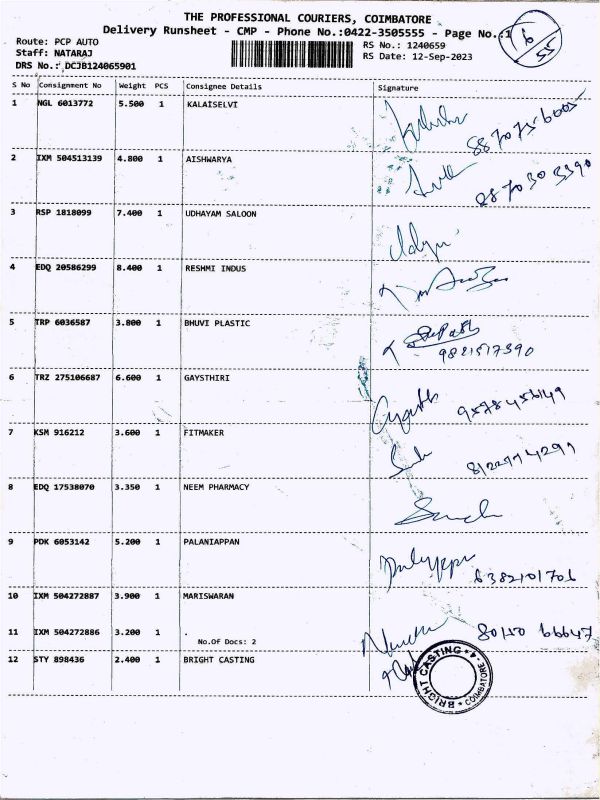 THE PROFESSIONAL COURIERS, COIMBATORE
Delivery Runsheet - CMP - Phone No.:0422-3505555 - Page No.:1
Route: PCP AUTO
Staff: NATARAJ
DRS No.: DCJB124065901
RS No.: 1240659
RS Date: 12-Sep-2023
6
55
S No Consignment No Weight PCS Consignee Details Signature
1 NGL 6013772 5.500 1 KALAISELVI
2 IXM 504513139 4.800 1 AISHWARYA
8870303390
3 RSP 1818099 7.400 1 UDHAYAM SALOON
4 EDQ 20586299 8.400 1 RESHMI INDUS
5 TRP 6036587 3.800 1 BHUVI PLASTIC
9821517390
6 TRZ 275106687 6.600 1 GAYSTHIRI
7 KSM 916212 3.600 1 FITMAKER
8 EDQ 17538070 3.350 1 NEEM PHARMACY
9 PDK 6053142 5.200 1 PALANIAPPAN
6382101706
10 IXM 504272887 3.900 1 MARISWARAN
11 IXM 504272886 3.200 1 .
No.Of Docs: 2
80150 66647
12 STY 898436 2.400 1 BRIGHT CASTING
BRIGHT CASTING * COIMBATORE - 4 *